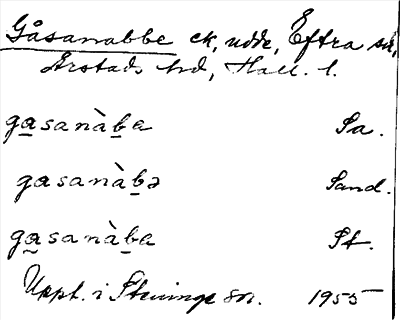 Gåsanabbe ek, udde, Eftra sn,
Årstads hd, Hall. l.
gasanàba Sa.
gasanàbə Sand.
gasanàba St.
Uppt. i Steninge sn. 1955